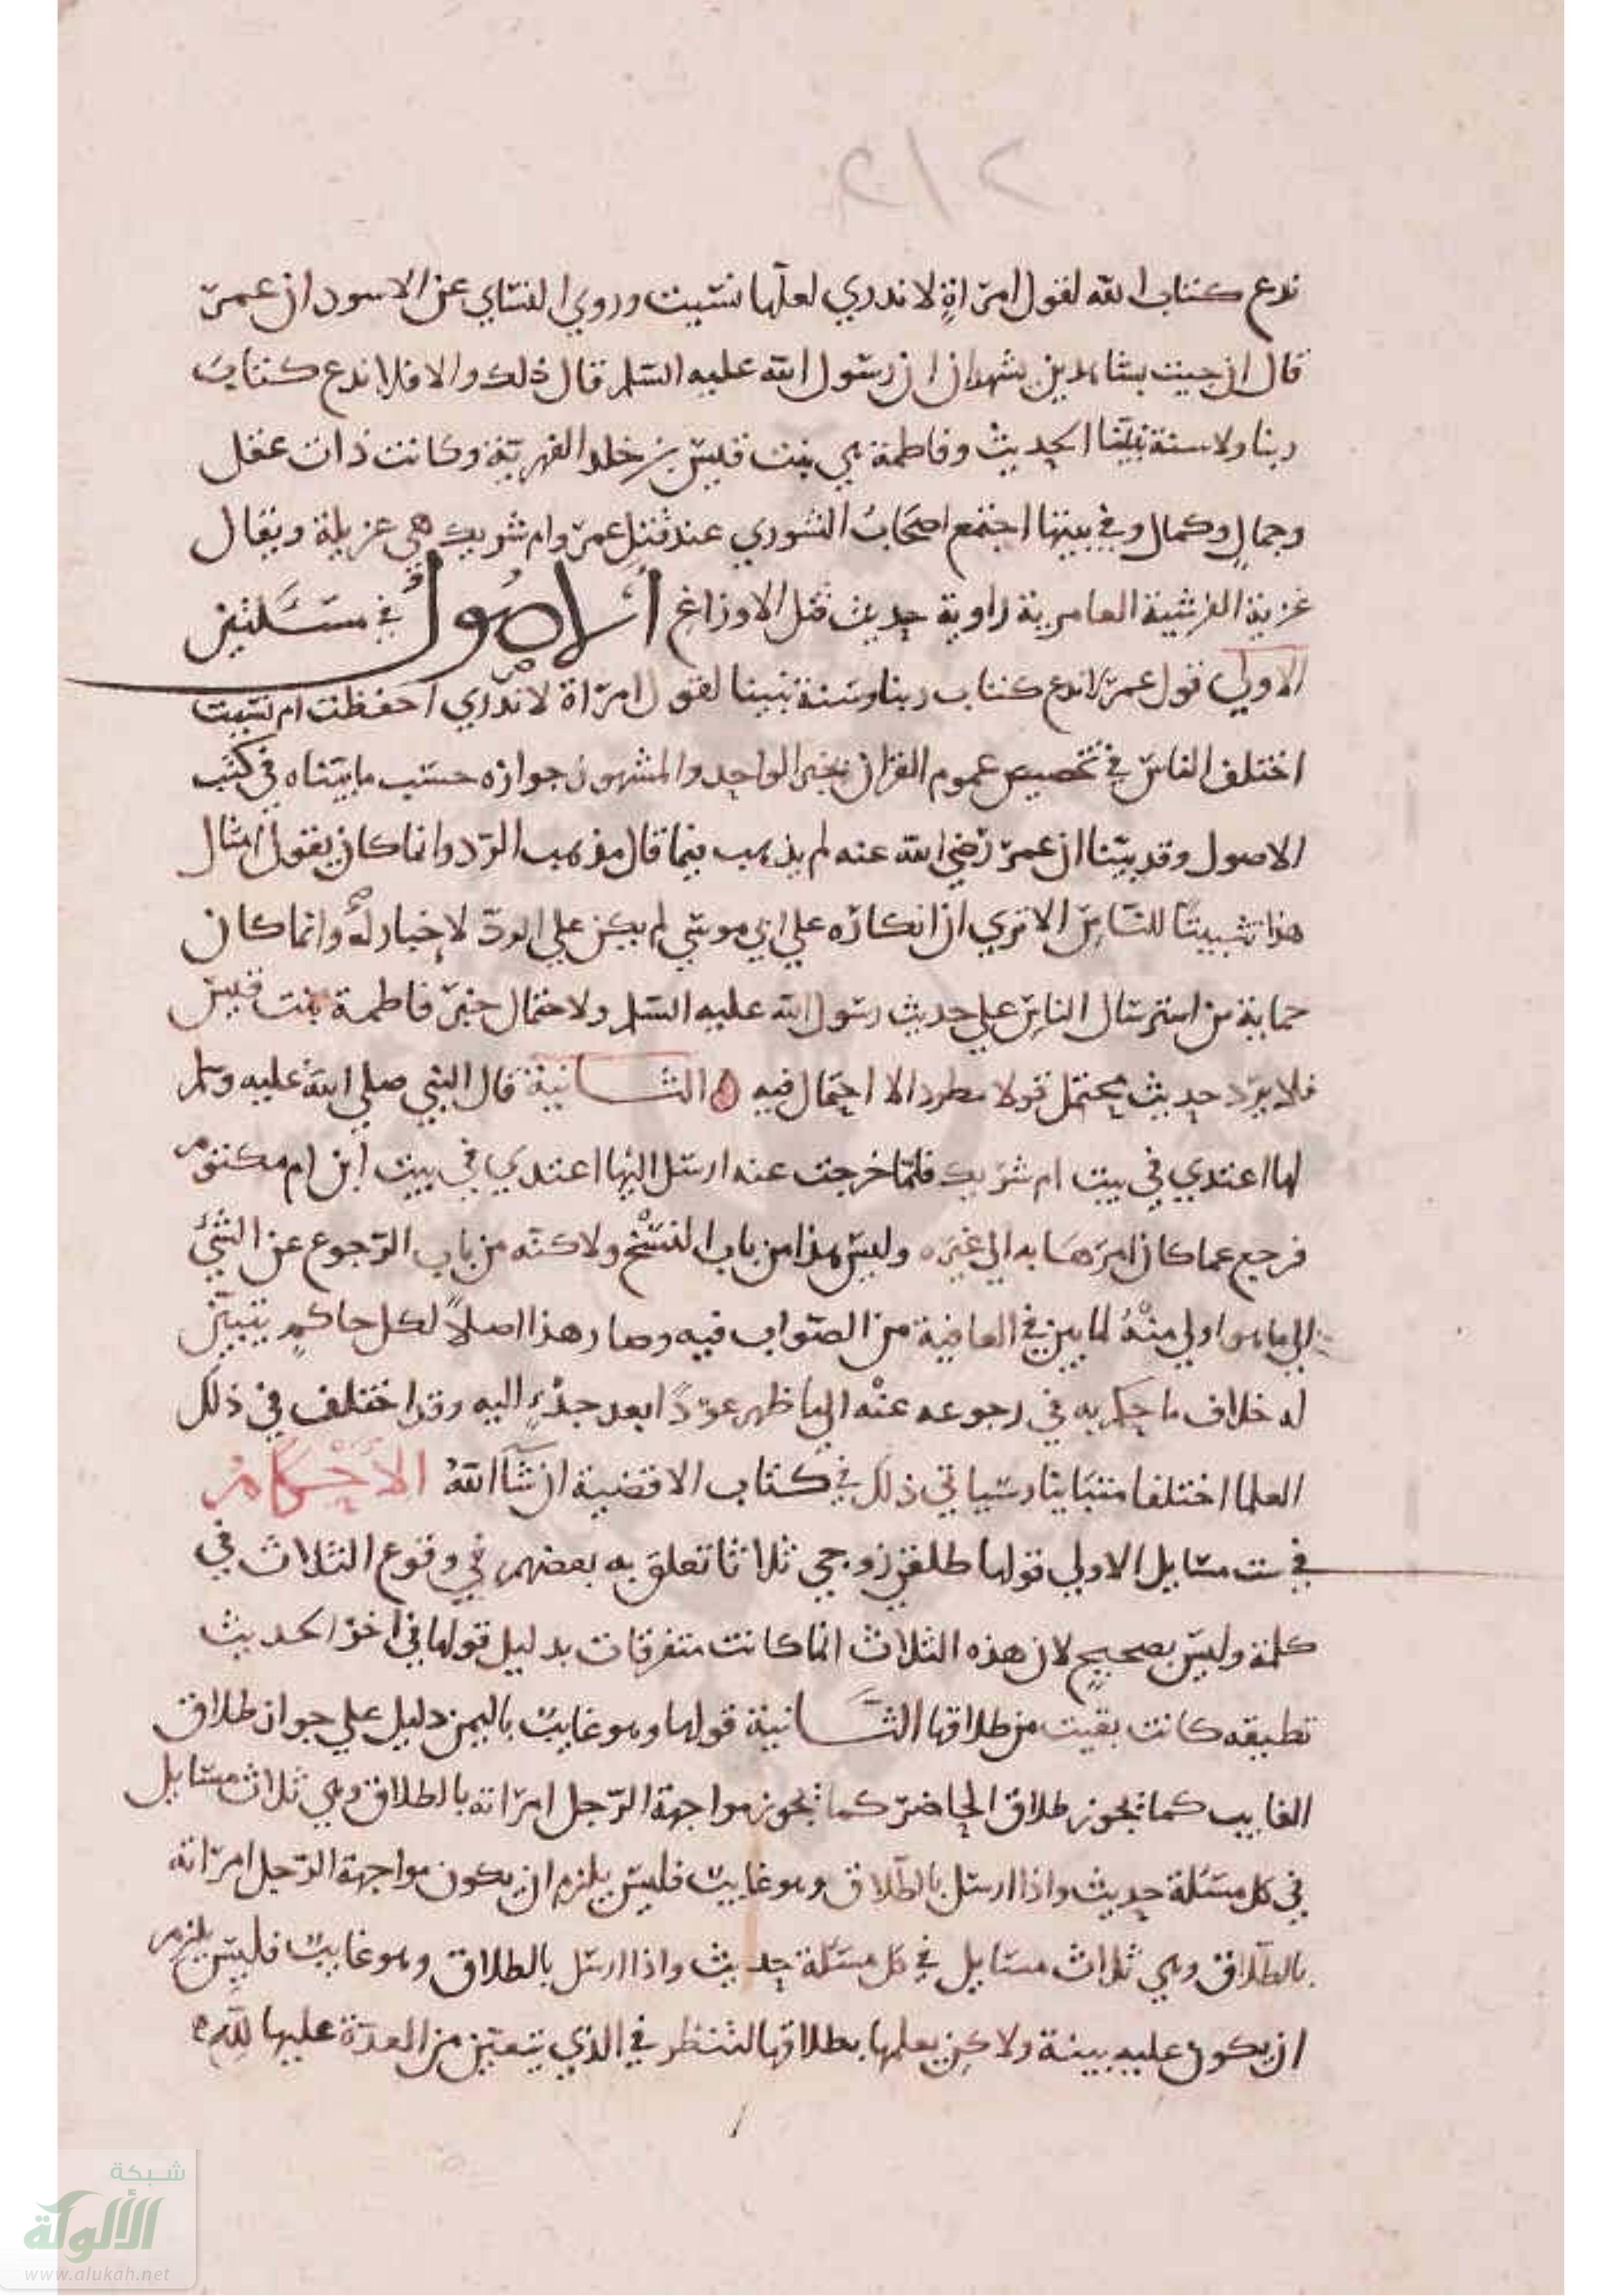 ٢١٢
ندع كتاب الله لقول امراة لا ندري لعلها نسيت وروي النساي عن الاسود ان عمر
قال ان جيت بشاهدين يشهدان ان رسول الله عليه السلم قال ذلك والا فلا ندع كتاب
ربنا ولا سنة نبينا الحديث وفاطمة هي بنت قيس بن خلد الفهرية وكانت ذات عقل
وجمال وكمال وفي بيتها اجتمع اصحاب الشوري عند قتل عمر وام شريك هي غزيلة ويقال
غزية القرشية العامرية راوية حديث قتل الاوزاغ الاصول في مسئلتين
الاولي قول عمر لا ندع كتاب ربنا وسنة نبينا لقول امراة لا ندري احفظت ام نسيت
اختلف الناس في تخصيص عموم القران بخبر الواحد والمشهور جوازه حسب ما بيناه في كتب
الاصول وقد بينا ان عمر رضي الله عنه لم يذهب فيما قال مذهب الرد وانما كان يقول امثال
هذا تثبيتا للناس الا تري ان انكاره علي ابي موسي لم يكن علي الرد لاخباره وانما كان
حماية من استرسال الناس علي حديث رسول الله عليه السلم ولاحتمال خبر فاطمة بنت قيس
فلا يرد حديث يحتمل قولا مطردا لا احتمال فيه ه الثانية قال النبي صلي الله عليه وسلم
لها اعتدي في بيت ام شريك فلما خرجت عنه ارسل اليها اعتدي في بيت ابن ام مكتوم
فرجع عما كان امرها به الي غيره وليس هذا من باب النسخ ولاكنه من باب الرجوع عن الشئ
الي ما هو اولي منه لما بين في العافية من الصواب فيه وصار هذا اصلا لكل حاكم يتبين
له خلاف ما حكم به في رجوعه عنه الي ما ظهر عودا بعد بدء اليه وقد اختلف في ذلك
العلما اختلفا متباينا وسياتي ذلك في كتاب الاقضية ان شا الله الاحكام
في ست مسايل الاولي قولها طلقني زوجي ثلاثا تعلق به بعضهم في وقوع الثلاث في
كلمة وليس بصحيح لان هذه الثلاث انما كانت متفرقات بدليل قولها في اخر الحديث
تطليقه كانت بقيت من طلاقها الثانية قولها وهو غايب باليمن دليل علي جواز طلاق
الغايب كما يجوز طلاق الحاضر كما يجوز مواجهة الرجل امراته بالطلاق وهي ثلاث مسايل
في كل مسئلة حديث واذا ارسل بالطلاق وهو غايب فليس يلزم ان يكون مواجهة الرجل امراته
بالطلاق وهي ثلاث مسايل في كل مسئلة حديث واذا ارسل بالطلاق وهو غايب فليس يلزم
ان يكون عليه بينة ولاكن يعلمها بطلاقها لتنظر في الذي يتعين من العدة عليها لله
شبكة
الألوكة
www.alukah.net